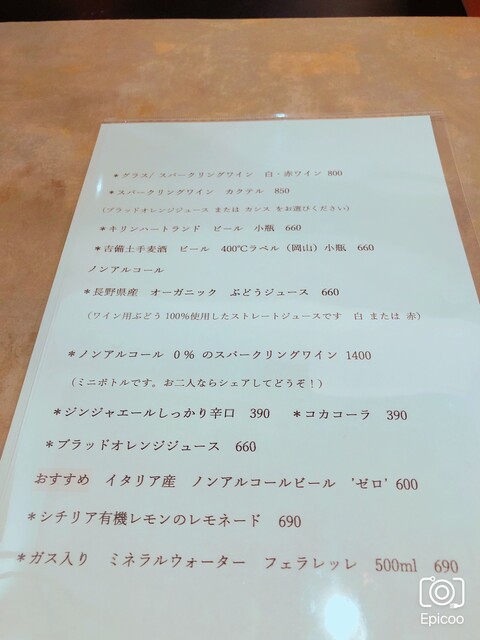 ＊グラス/ スパークリングワイン　白・赤ワイン 800
＊スパークリングワイン　カクテル　850
（ブラッドオレンジジュース または カシス をお選びください）
＊キリンハートランド　ビール　小瓶　660
＊吉備土手麦酒　ビール　400℃ラベル（岡山）小瓶　660
ノンアルコール
＊長野県産　オーガニック　ぶどうジュース　660
（ワイン用ぶどう 100％使用したストレートジュースです　白 または 赤）
＊ノンアルコール　0％ のスパークリングワイン 1400
（ミニボトルです。お二人ならシェアしてどうぞ！）
＊ジンジャエールしっかり辛口　390　＊コカコーラ　390
＊ブラッドオレンジジュース　660
おすすめ　イタリア産　ノンアルコールビール　'ゼロ' 600
＊シチリア有機レモンのレモネード　690
＊ガス入り　ミネラルウォーター　フェラレッレ　500ml　690
Epicoo